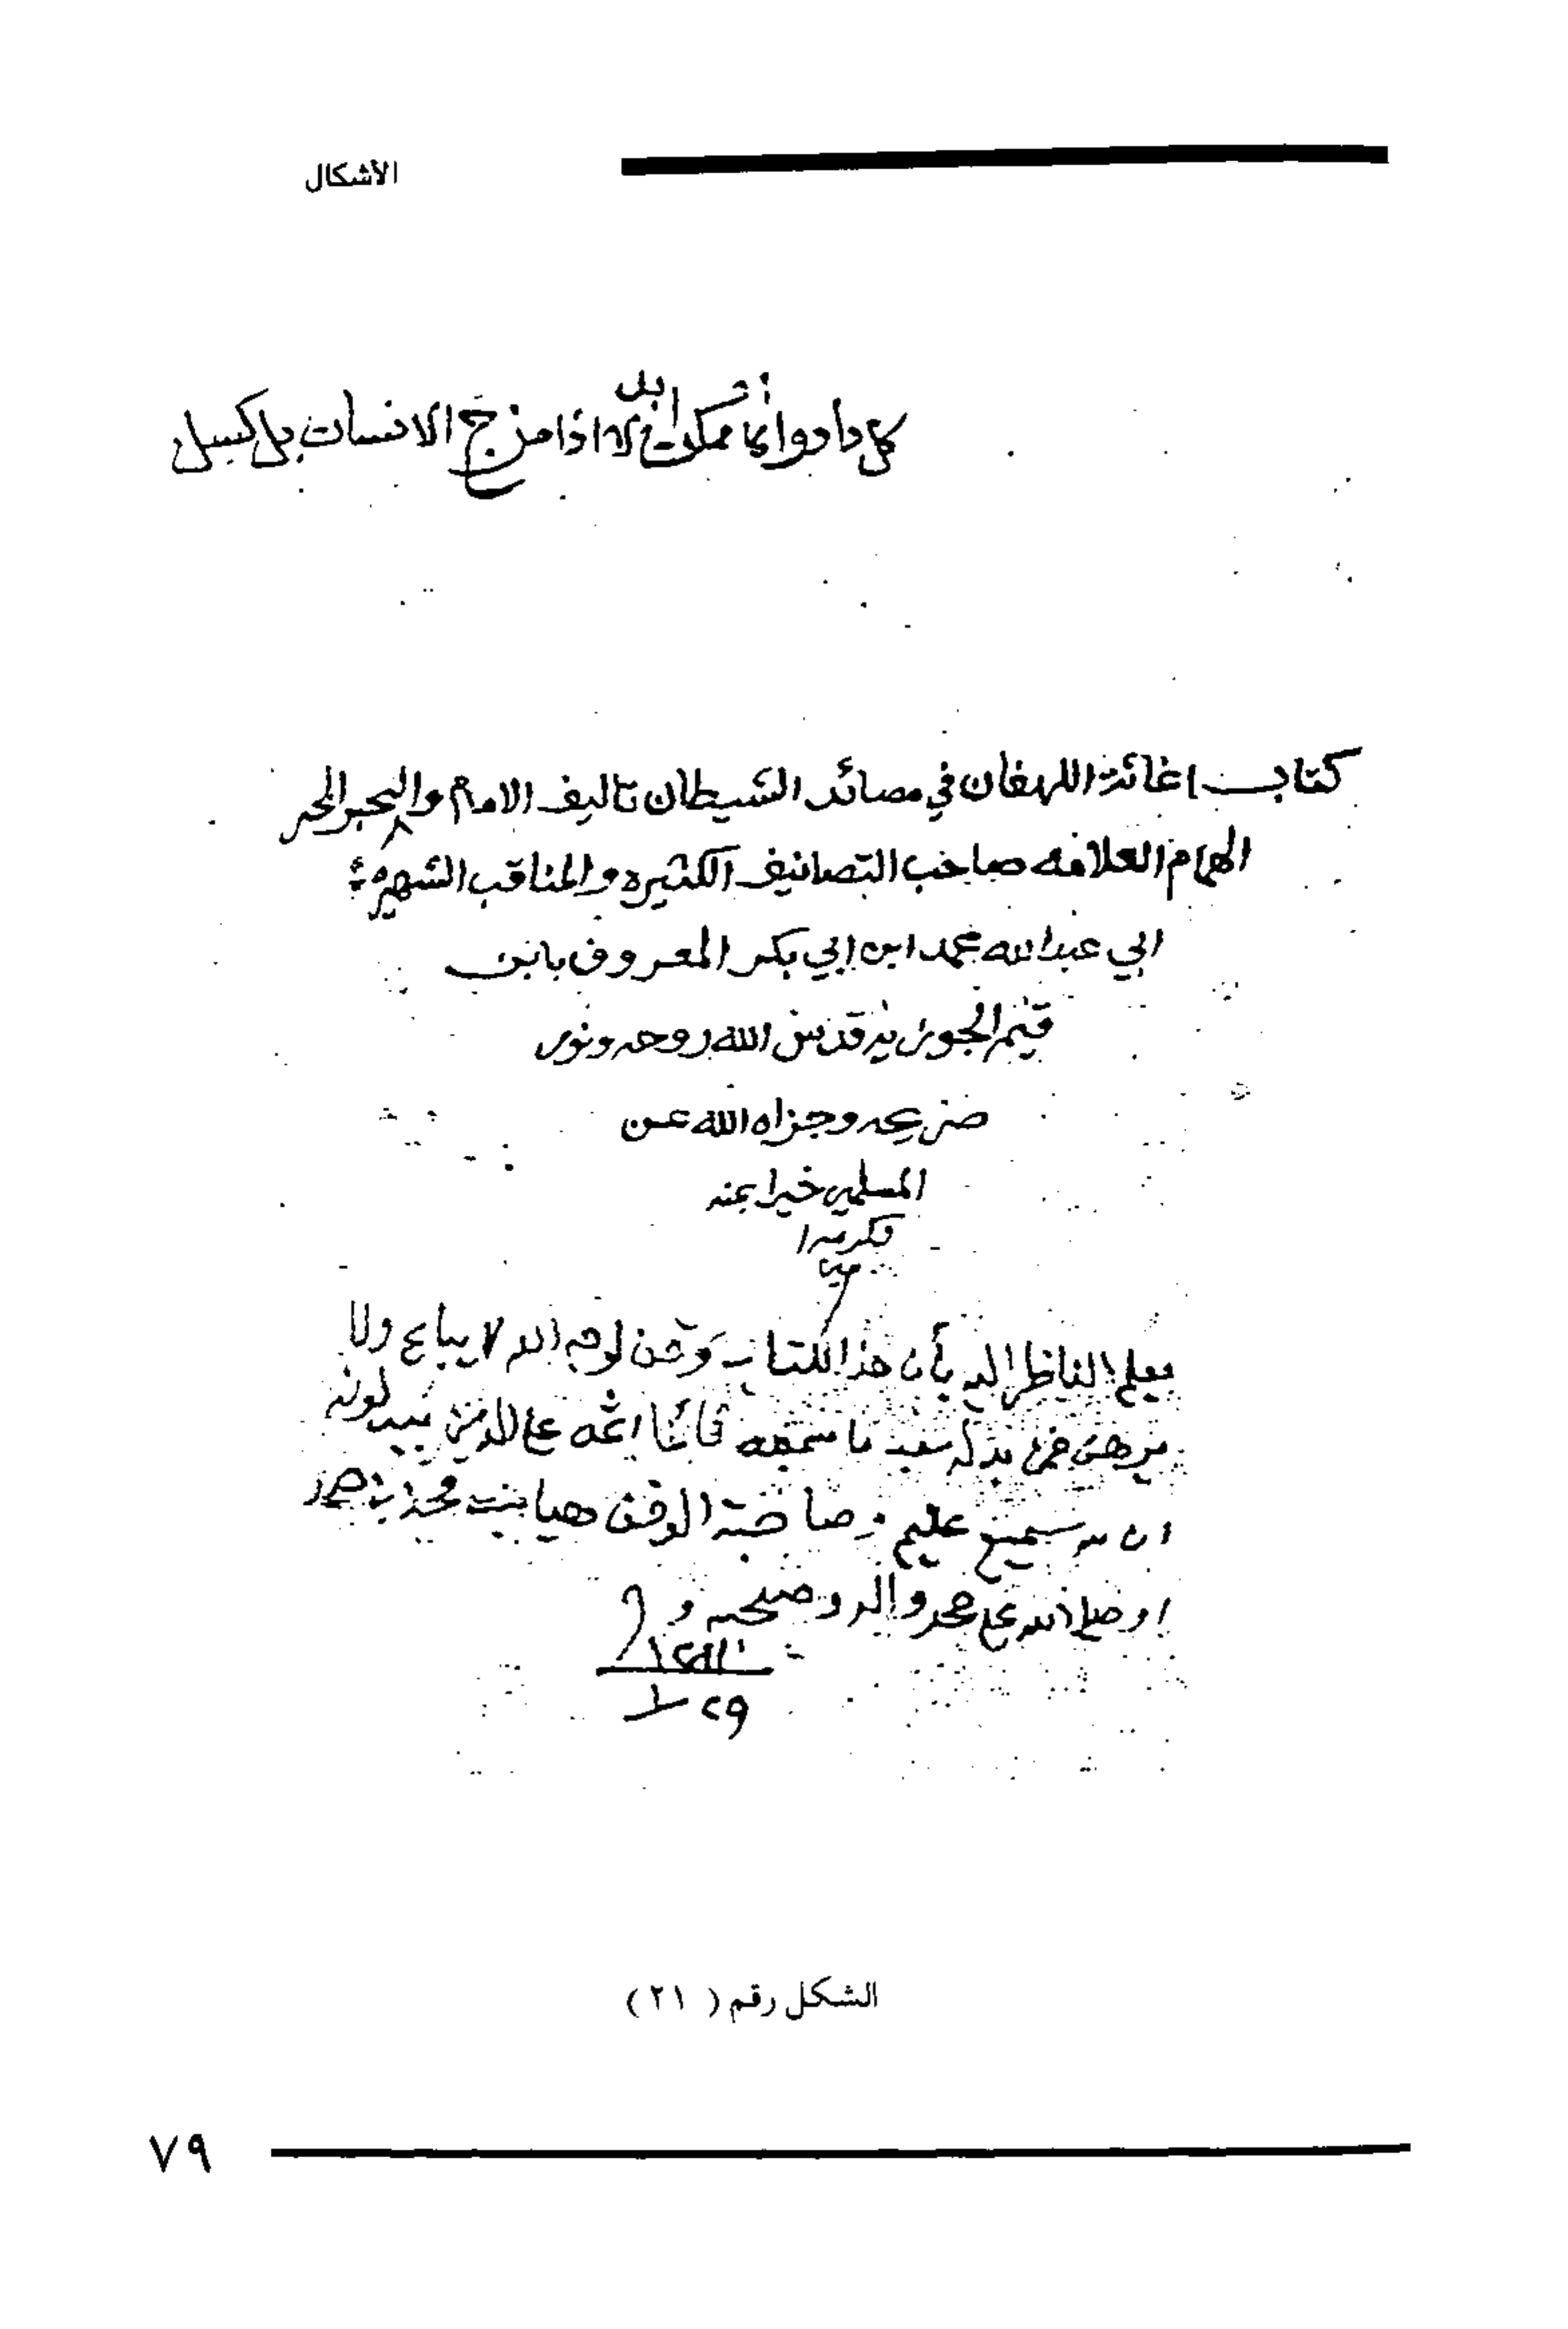 الأشكال
كتاب اغاثة اللهفان في مصائد الشيطان تاليف الامام والبحر
الهمام العلامه صاحب التصانيف الكثيره والمناقب الشهيره
ابي عبدالله محمد ابن ابي بكر المعروف بابن
قيم الجوزيه قدس الله روحه ونور
ضريحه وجزاه الله عن
المسلمين خيرا بمنه
وكرمه
يعلم الناظر اليه بأن هذا الكتاب وقف لوجه الله لا يباع ولا
يرهن فمن بدله بعد ما سمعه فانما اثمه على الذين يبدلونه
ان الله سميع عليم صاحبة الوقف هيا بنت محمد
وصلى الله على محمد واله وصحبه و
الشكل رقم ( ٢١ )
٧٩